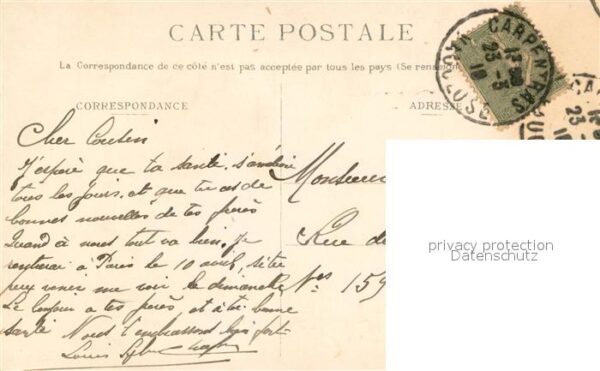 CARTE POSTALE
La Correspondance de ce côté n'est pas acceptée par tous les pays (Se renseign
CORRESPONDANCE
ADRESSE
CARPENTRAS
23 -3
VAUCLUSE
CA
23
Cher Cousin
J'espère que ta santé s'améliore
tous les jours, et que tu as de
bonnes nouvelles de tes frères
Quand à nous tout va bien. Je
rentrerai à Paris le 10 avril, si tu
peux venir me voir le dimanche
Le bonjour a tes frères et à toi bonne
santé Nous t'embrassons bien fort
Louis
Monsieur
Rue de
No 159
privacy protection
Datenschutz